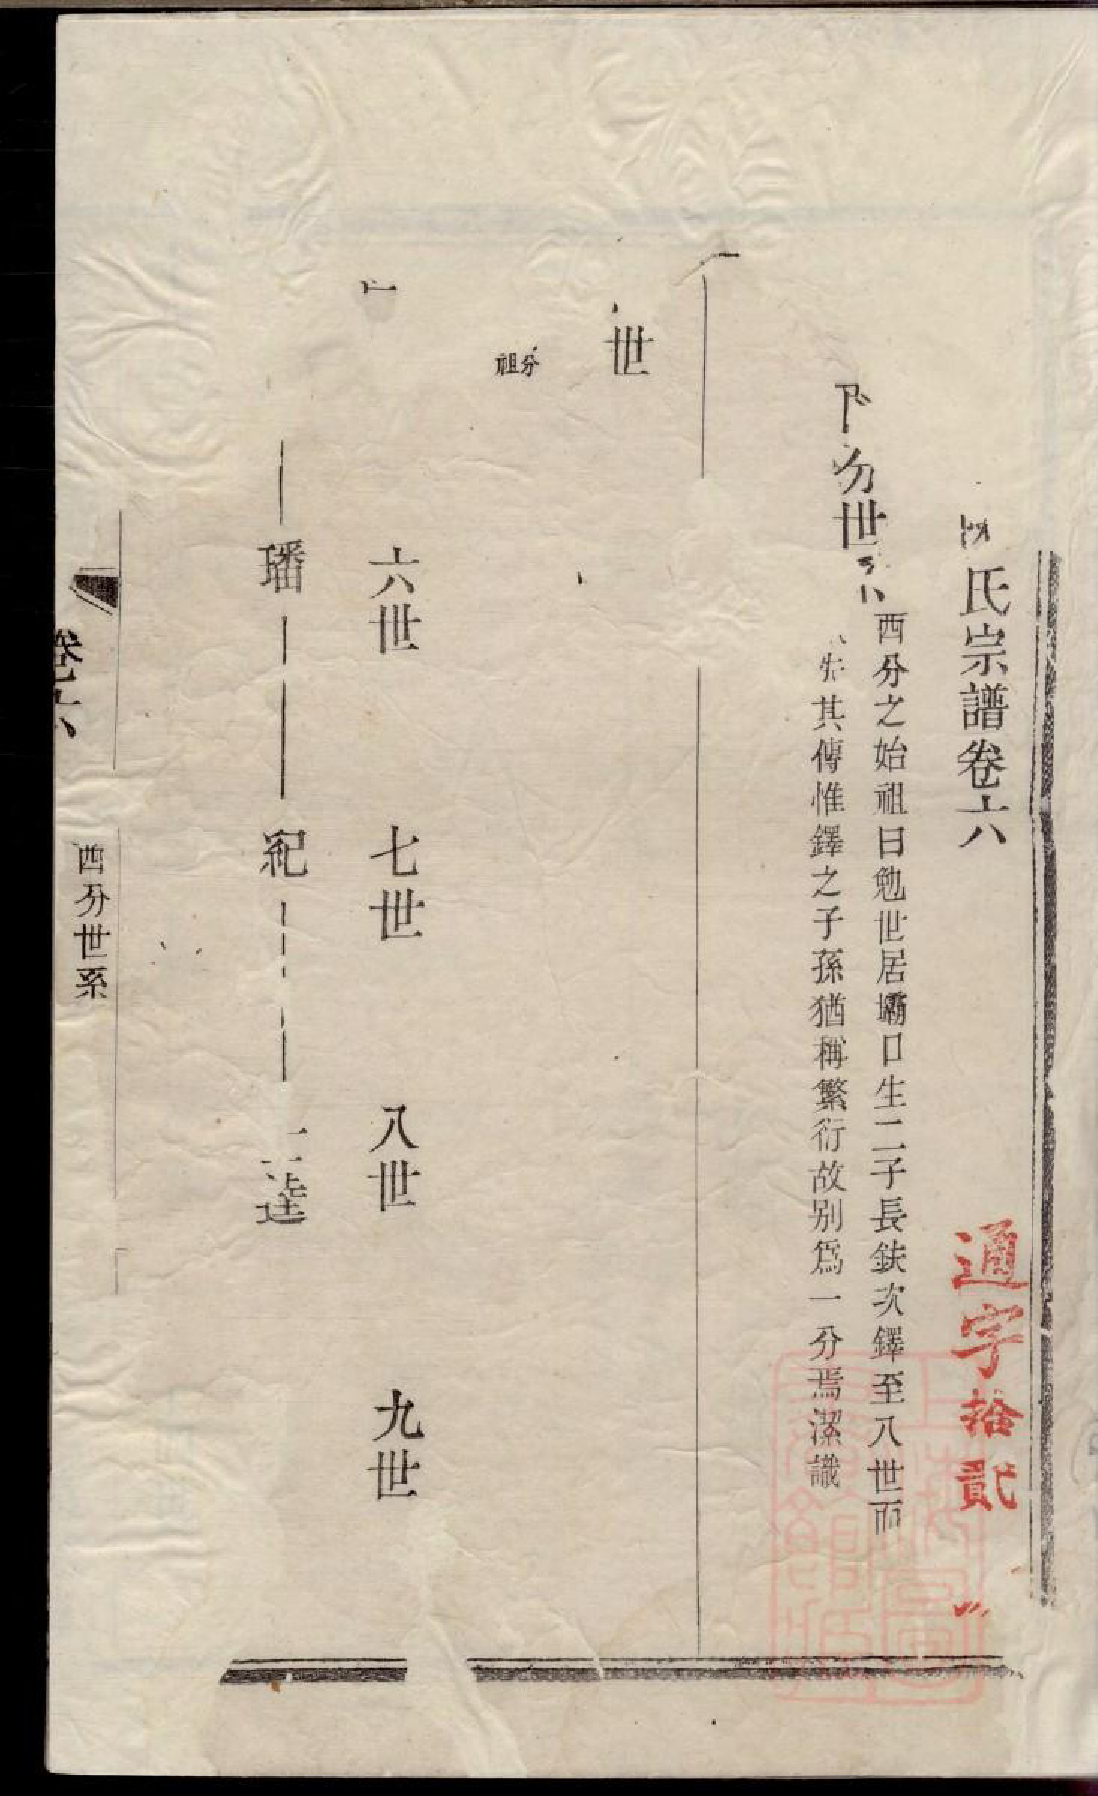 氏宗譜卷六
通字拾貳
分世
西分之始祖日勉世居壩口生二子長鈇次鐸至八世而
失其傳惟鐸之子孫猶稱繁衍故別爲一分焉潔識
世
分祖
六世
七世
八世
九世
璠
紀
達
卷六
西分世系